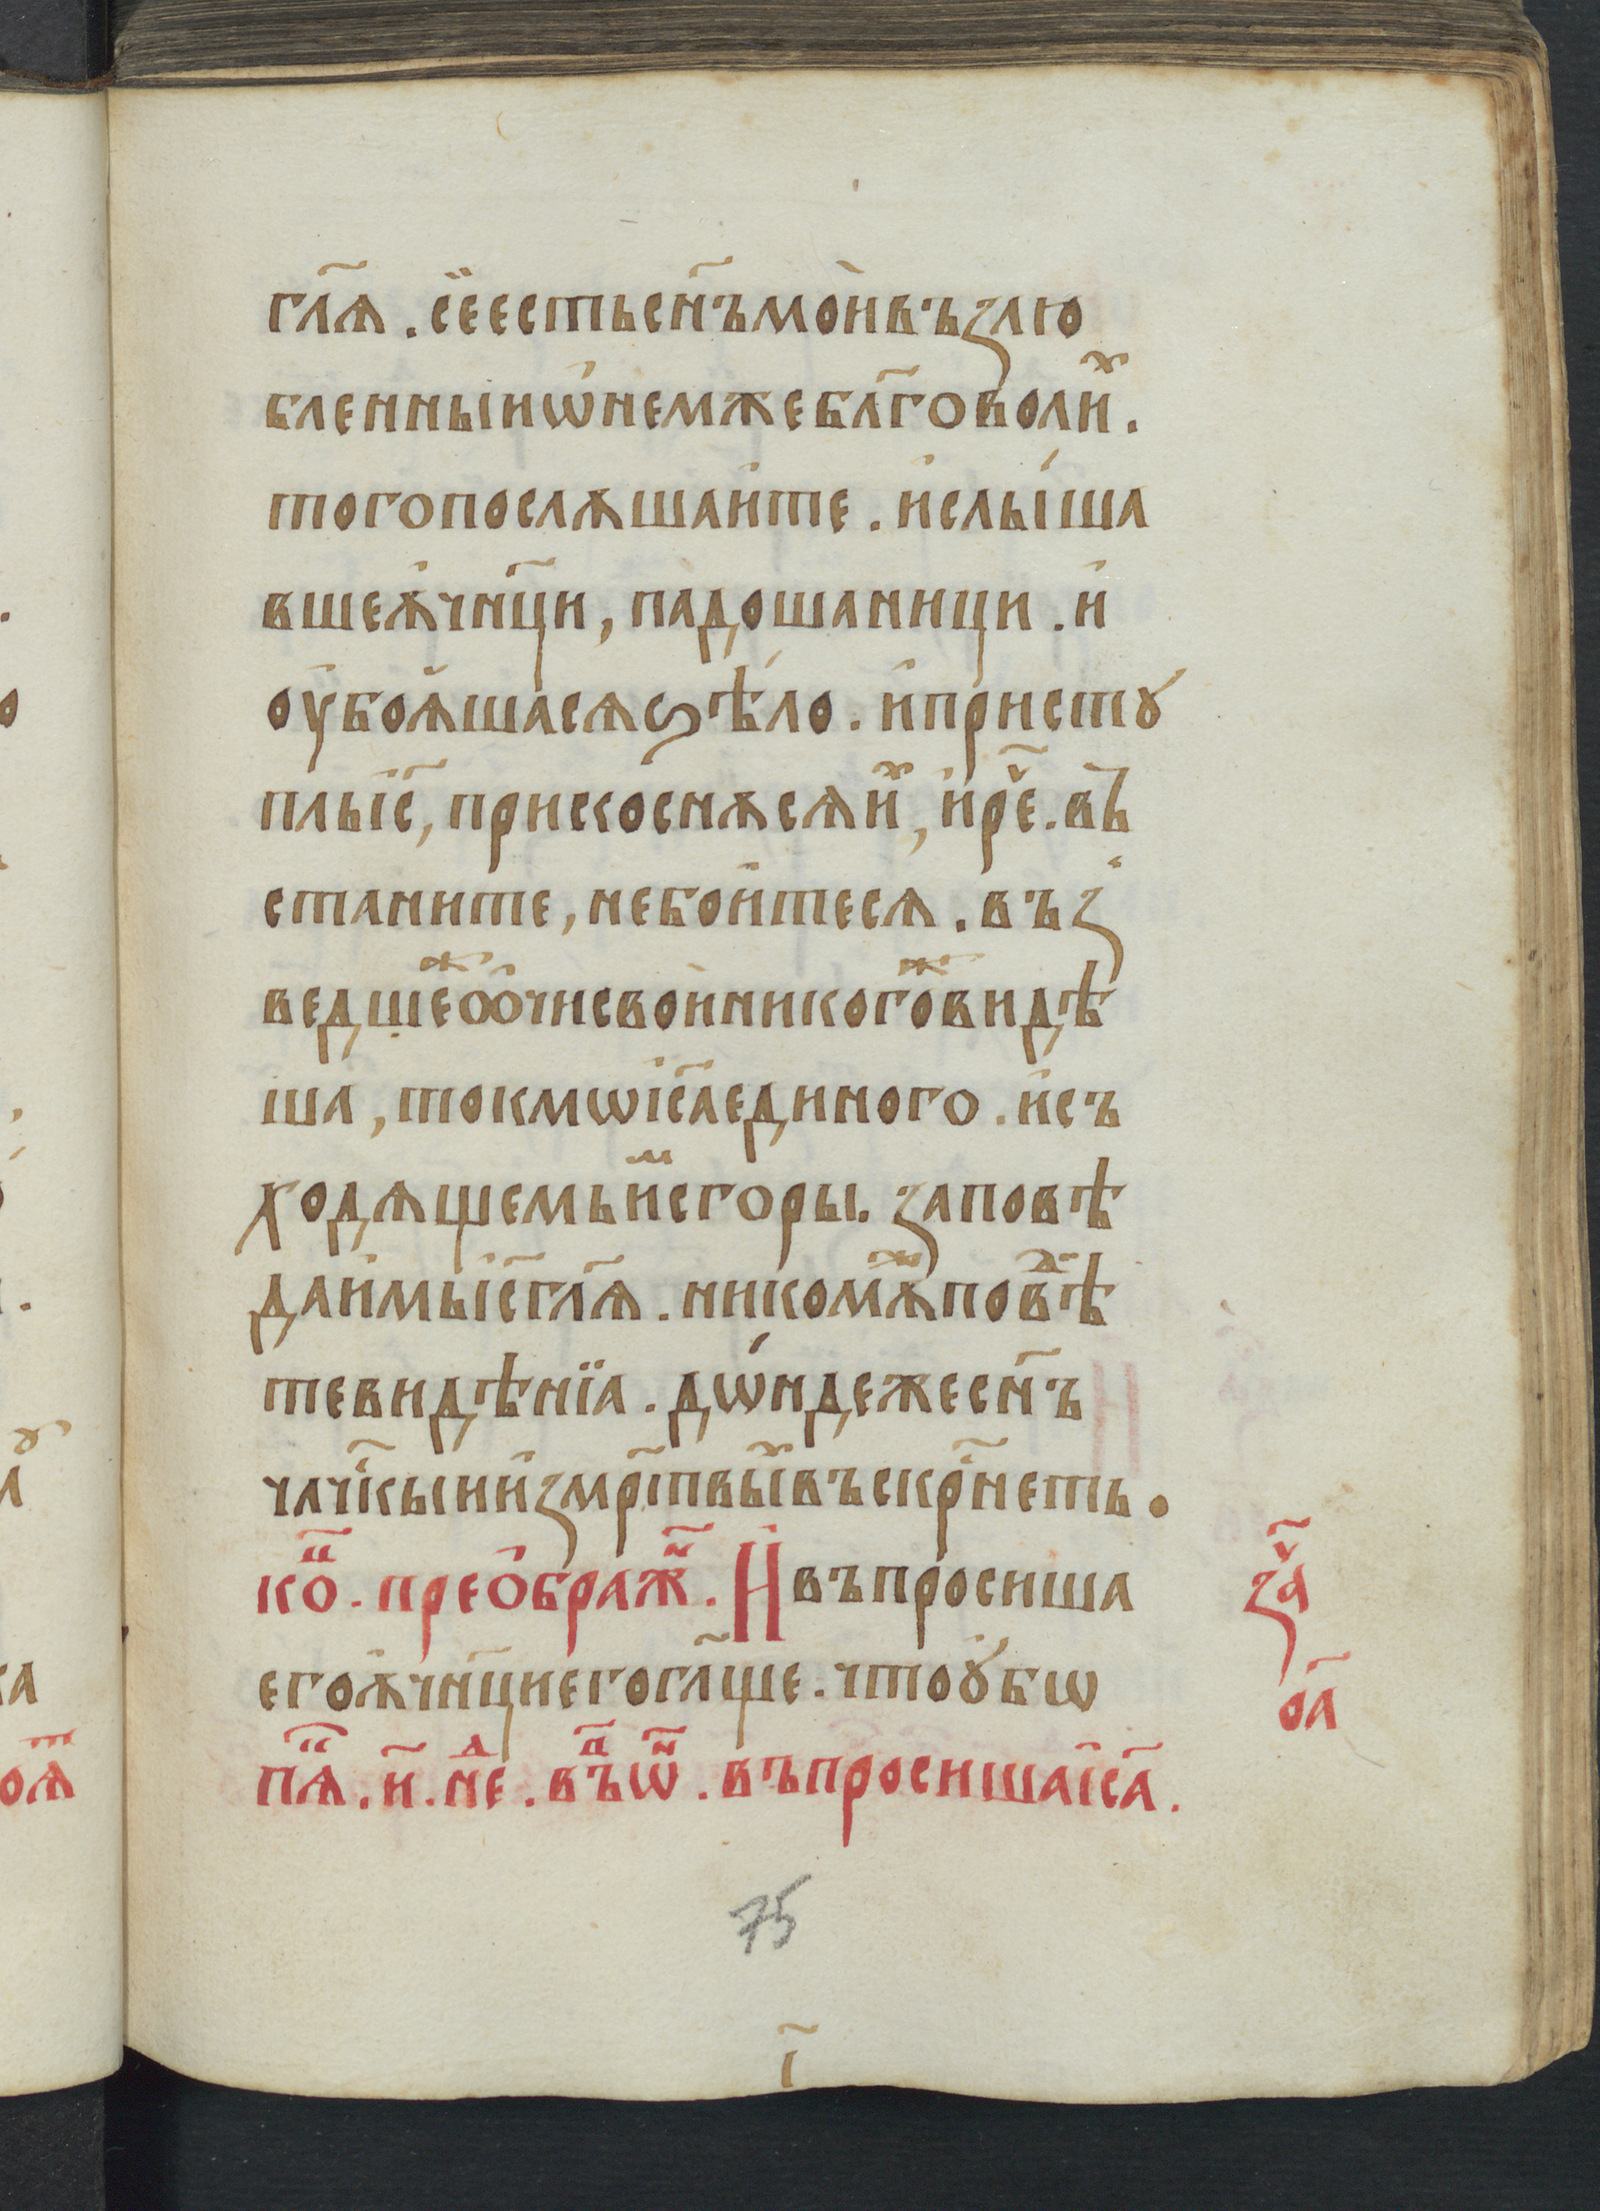 гл҃ѧ . се̏естьсн҃ъмо́ивъзлю
бленныиѡ҆немжебл҃гово́лиⷯ .
тогопослѫшаи҆те . и҆слы́ша
вшеѫ҆чн҃ци , па́дошаници . и҆
оу҆боѧ҆шасѧѕѣ́ло . и҆пристꙋ
пльі҆с҃ , прикоснѫсѧи҆ⷯ , и҆рⷱ҇е . въ
станите , небои҆тесѧ . въз
ведшеⷤѻ҆чисвои҆никогоⷤвидѣ
ша , токмѡі҆с҃аединого . и҆съ
ходѧщемьиⷨсгоры . заповѣ
даи҆мьі҆с҃гл҃ѧ . никомѫⷤповѣⷣ
тевидѣнїа . дѡ́ндежесн҃ъ
члч҃кыии҆змр҃твыⷯвъскрⷭ҇нетъ .
коⷰ҇ . прео҆бражⷩ҇ . И҆въпросиша
егоѫ҆чн҃циегогл҃ще . чтоꙋ҆бѡ
пѧⷦ҇ . и҃ . неⷣ . въⷫ҇ѡⷩ҇ . въпросишаі҆с҃а .
заⷱ҇
о҃а
75
і҃